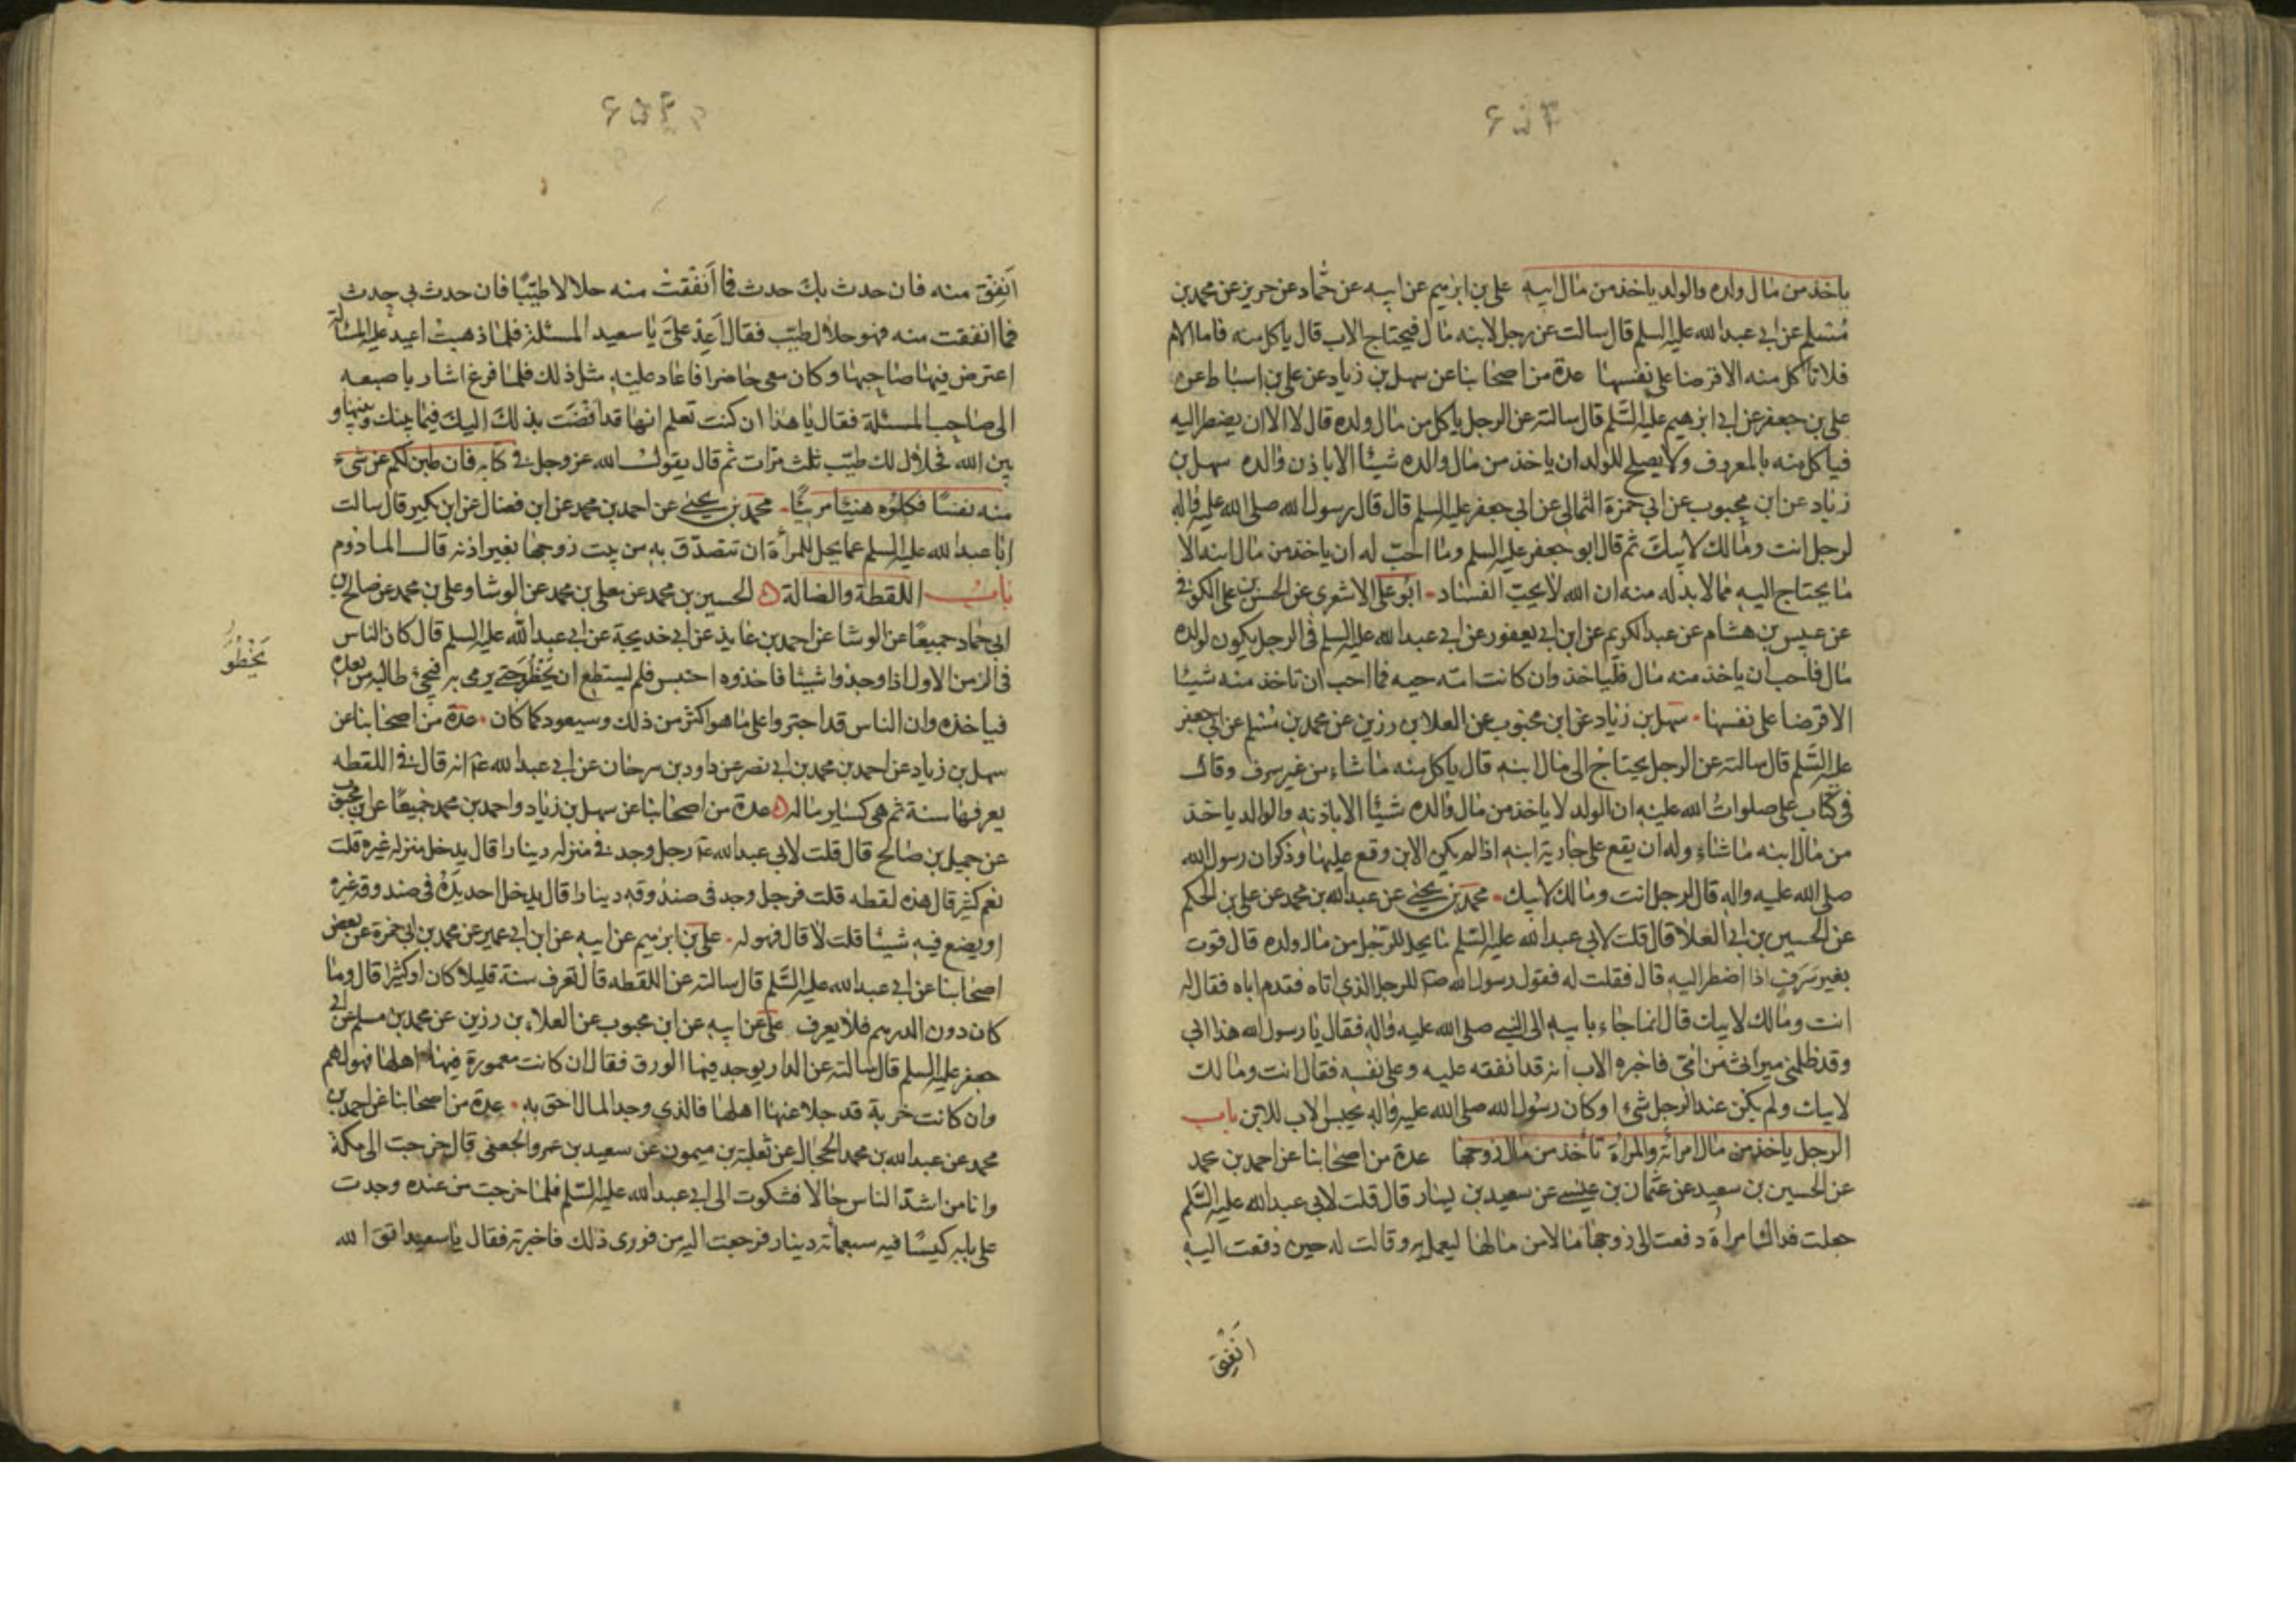 ياخذ من مال ولده والولد ياخذ من مال ابيه علي بن ابرهيم عن ابيه عن حماد عن حريز عن محمد بن
مسلم عن ابي عبد الله عليه السلم قال سالت عن رجل لابنه مال فيحتاج الاب قال ياكل منه فاما الام
فلا تاكل منه الا قرضا على نفسها عدة من اصحابنا عن سهل بن زياد عن علي بن اسباط عن
علي بن جعفر عن ابي ابرهيم عليه السلم قال سالته عن الرجل ياكل من مال ولده قال لا الا ان يضطر اليه
فياكل منه بالمعروف ولا يصلح للولد ان ياخذ من مال والده شيئا الا باذن والده سهل بن
زياد عن ابن محبوب عن ابي حمزة الثمالي عن ابي جعفر عليه السلم قال قال رسول الله صلى الله عليه واله
لرجل انت ومالك لابيك ثم قال ابو جعفر عليه السلم وما احب له ان ياخذ من مال ابنه الا
ما يحتاج اليه مما لابد له منه ان الله لا يحب الفساد ابو علي الاشعري عن الحسن بن علي الكوفي
عن عبيس بن هشام عن عبد الكريم عن ابن ابي يعفور عن ابي عبد الله عليه السلم في الرجل يكون لولده
مال فاحب ان ياخذ منه مال فلياخذ وان كانت امه حيه فما احب ان تاخذ منه شيئا
الا قرضا على نفسها سهل بن زياد عن ابن محبوب عن العلا بن رزين عن محمد بن مسلم عن ابي جعفر
عليه السلم قال سالته عن الرجل يحتاج الى مال ابنه قال ياكل منه ما شاء من غير سرف وقال
في كتاب علي صلوات الله عليه ان الولد لا ياخذ من مال والده شيئا الا باذنه والوالد ياخذ
من مال ابنه ما شاء وله ان يقع على جارية ابنه اذا لم يكن الابن وقع عليها وذكر ان رسول الله
صلى الله عليه واله قال لرجل انت ومالك لابيك محمد بن يحيى عن عبد الله بن محمد عن علي بن الحكم
عن الحسين بن ابي العلا قال قلت لابي عبد الله عليه السلم ما يحل للرجل من مال ولده قال قوت
بغير سرف اذا اضطر اليه قال فقلت له فقول رسول الله ص للرجل الذي اتاه فقدم اباه فقال له
انت ومالك لابيك قال انما جاء بابيه الى النبي صلى الله عليه واله فقال يا رسول الله هذا ابي
وقد ظلمني ميراثي من امي فاخبره الاب انه قد انفقه عليه وعلى نفسه فقال انت ومالك
لابيك ولم يكن عند الرجل شيء او كان رسول الله صلى الله عليه واله يحبس الاب للابن باب
الرجل ياخذ من مال امرأته والمرأة تأخذ من مال زوجها عدة من اصحابنا عن احمد بن محمد
عن الحسين بن سعيد عن عثمان بن عيسى عن سعيد بن يسار قال قلت لابي عبد الله عليه السلم
جعلت فداك امرأة دفعت الى زوجها مالا من مالها ليعمل به وقالت له حين دفعت اليه
انفق
انفق منه فان حدث بك حدث فما انفقت منه حلالا طيبا فان حدث بي حدث
فما انفقت منه فهو حلال طيب فقال اعد علي يا سعيد المسئلة فلما ذهبت اعيد عليه المسألة
اعترض فيها صاحبها وكان معي حاضرا فاعاد عليه مثل ذلك فلما فرغ اشار باصبعه
الى صاحب المسئلة فقال يا هذا ان كنت تعلم انها قد افضت بذلك اليك فيما بينك وبينها و
بين الله فحلال لك طيب ثلث مرات ثم قال يقول الله عز وجل في كتابه فان طبن لكم عن شيء
منه نفسا فكلوه هنيئا مريئا محمد بن يحيى عن احمد بن محمد عن ابن فضال عن ابن بكير قال سالت
ابا عبد الله عليه السلم عما يحل للمرأة ان تتصدق به من بيت زوجها بغير اذنه قال المادوم
باب اللقطة والضالة الحسين بن محمد عن معلى بن محمد عن الوشا وعلي بن محمد عن صالح بن
ابي حماد جميعا عن الوشا عن احمد بن عايذ عن ابي خديجة عن ابي عبد الله عليه السلم قال كان الناس
في الزمن الاول اذا وجدوا شيئا فاخذوه احتبس فلم يستطع ان يخطو حتى يرمي به فيجيء طالبه من بعده
يخطو
فياخذه وان الناس قد اجتروا على ما هو اكثر من ذلك وسيعود كما كان عدة من اصحابنا عن
سهل بن زياد عن احمد بن محمد بن ابي نصر عن داود بن سرحان عن ابي عبد الله ع انه قال في اللقطه
يعرفها سنة ثم هي كساير ماله عدة من اصحابنا عن سهل بن زياد واحمد بن محمد جميعا عن ابن محبوب
عن جميل بن صالح قال قلت لابي عبد الله ع رجل وجد في منزله دينارا قال يدخل منزله غيره قلت
نعم كثير قال هذه لقطه قلت فرجل وجد في صندوقه دينارا قال يدخل احد يده في صندوقه غيره
او يضع فيه شيئا قلت لا قال فهو له علي بن ابرهيم عن ابيه عن ابن ابي عمير عن محمد بن ابي حمزة عن بعض
اصحابنا عن ابي عبد الله عليه السلم قال سالته عن اللقطه قال تعرف سنة قليلا كان او كثيرا قال وما
كان دون الدرهم فلا يعرف علي عن ابيه عن ابن محبوب عن العلاء بن رزين عن محمد بن مسلم عن ابي
جعفر عليه السلم قال سالته عن الدار يوجد فيها الورق فقال ان كانت معمورة فيها اهلها فهو لهم
وان كانت خربة قد جلا عنها اهلها فالذي وجد المال احق به عدة من اصحابنا عن احمد بن
محمد عن عبد الله بن محمد الحجال عن ثعلبة بن ميمون عن سعيد بن عمرو الجعفي قال خرجت الى مكة
وانا من اشد الناس حالا فشكوت الى ابي عبد الله عليه السلم فلما خرجت من عنده وجدت
على بابه كيسا فيه سبعمأته دينار فرجعت اليه من فوري ذلك فاخبرته فقال يا سعيد اتق الله